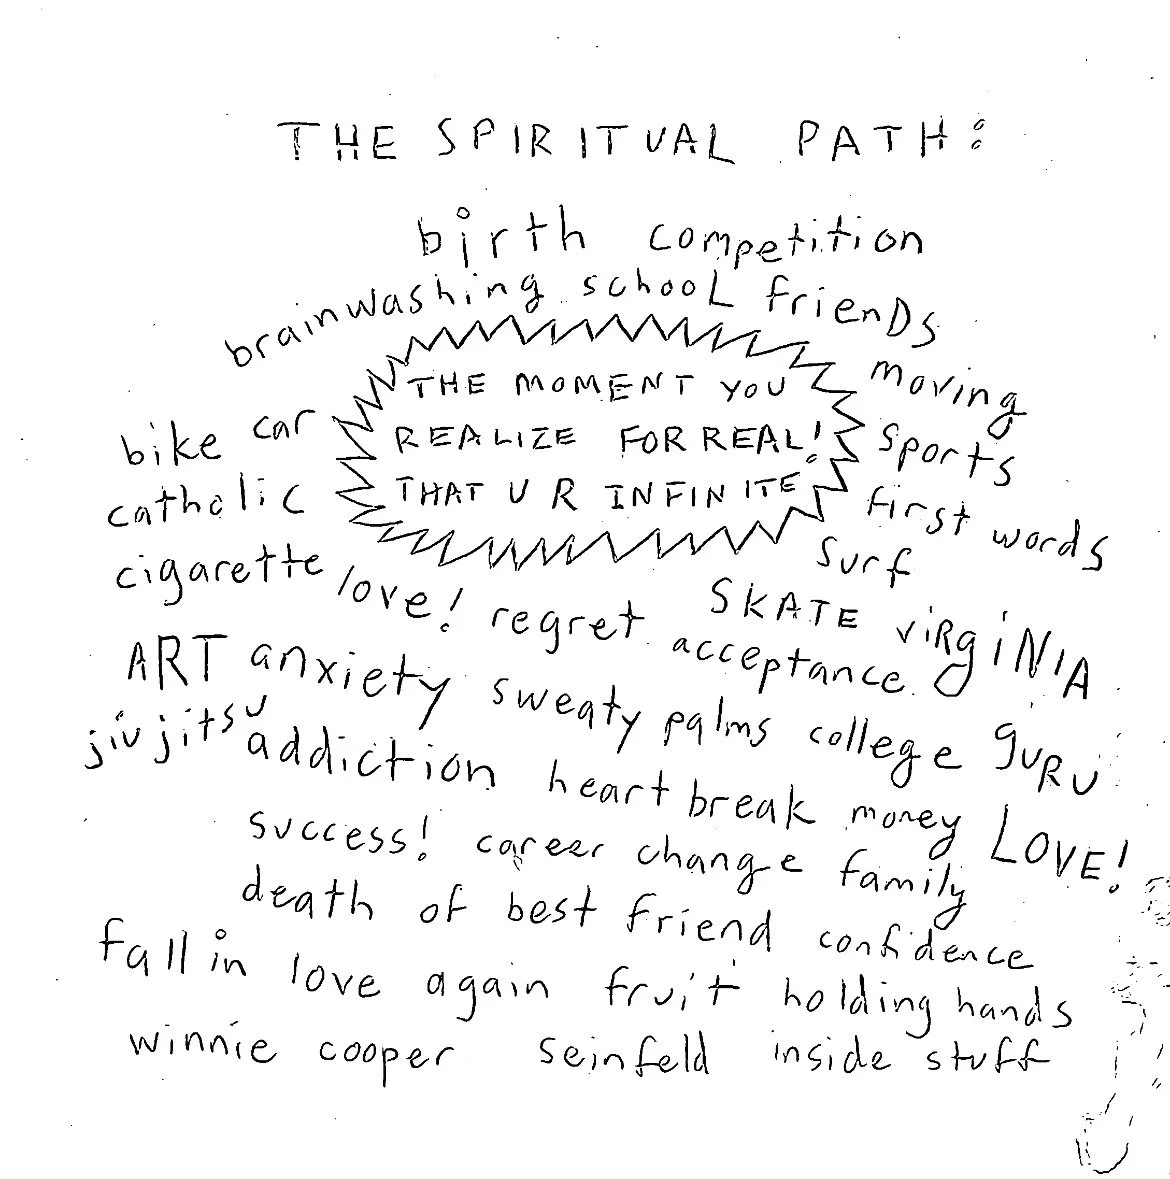 THE SPIRITUAL PATH:
birth competition
brainwashing school frienDs
THE MOMENT YOU
REALIZE FOR REAL!
THAT U R INFINITE
moving
bike car
sports
catholic
first words
cigarette love! regret
surf
SKATE VIRgiNIA
acceptance
ART anxiety sweaty palms college guRu
jiu jitsu addiction heart break money LOVE!
success! career change family
death of best friend confidence
fall in love again fruit holding hands
winnie cooper seinfeld inside stuff